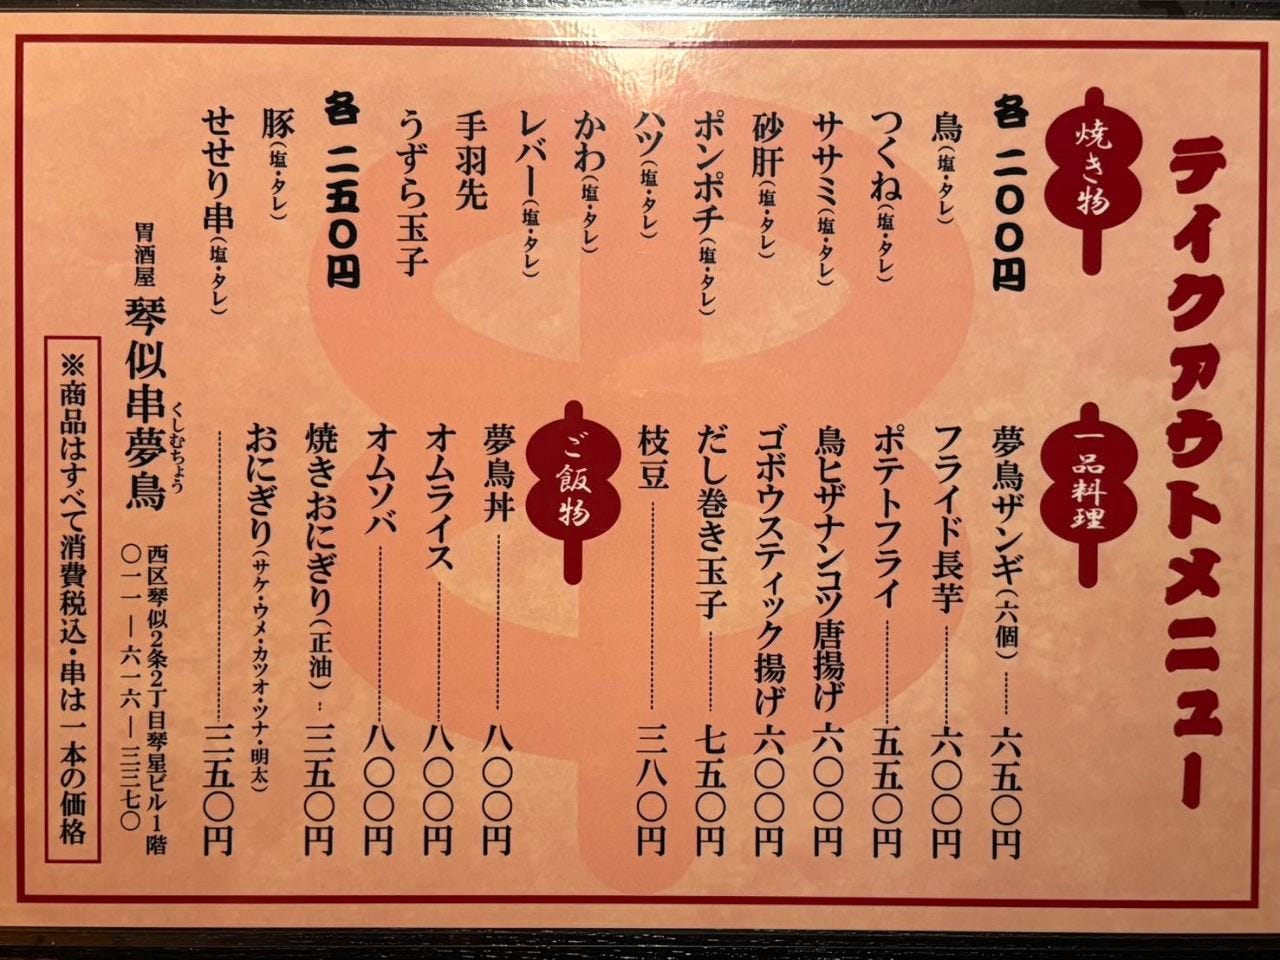 テイクアウトメニュー
焼き物
各 二〇〇円
鳥(塩・タレ)
つくね(塩・タレ)
ササミ(塩・タレ)
砂肝(塩・タレ)
ポンポチ(塩・タレ)
ハツ(塩・タレ)
かわ(塩・タレ)
レバー(塩・タレ)
手羽先
うずら玉子
各 二五〇円
豚(塩・タレ)
せせり串(塩・タレ)
一品料理
夢鳥ザンギ(六個) 六五〇円
フライド長芋 六〇〇円
ポテトフライ 五五〇円
鳥ヒザナンコツ唐揚げ 六〇〇円
ゴボウスティック揚げ 六〇〇円
だし巻き玉子 七五〇円
枝豆 三八〇円
ご飯物
夢鳥丼 八〇〇円
オムライス 八〇〇円
オムソバ 八〇〇円
焼きおにぎり(正油) 三五〇円
おにぎり(サケ・ウメ・カツオ・ツナ・明太)
三五〇円
胃酒屋 琴似串夢鳥
くしむちょう
西区琴似2条2丁目琴星ビル1階
〇一一―六一六―三三七〇
※商品はすべて消費税込・串は一本の価格